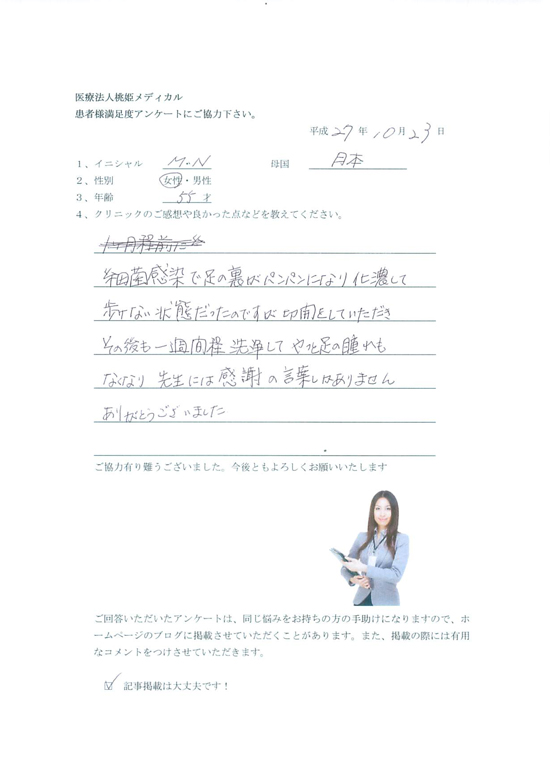 医療法人桃姫メディカル
患者様満足度アンケートにご協力下さい。
平成 27 年 10 月 23 日
1、イニシャル M.N 母国 日本
2、性別 女性・男性
3、年齢 55 才
4、クリニックのご感想や良かった点などを教えてください。
1ヶ月程前に
細菌感染で足の裏がパンパンになり化濃して
歩けない状態だったのですが切開をしていただき
その後も一週間程洗浄してやっと足の腫れも
なくなり 先生には感謝の言葉しかありません
ありがとうございました
ご協力有り難うございました。今後ともよろしくお願いいたします
ご回答いただいたアンケートは、同じ悩みをお持ちの方の手助けになりますので、ホ
ームページのブログに掲載させていただくことがあります。また、掲載の際には有用
なコメントをつけさせていただきます。
☑ 記事掲載は大丈夫です！